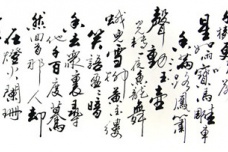 星如雨寶馬雕車
香滿路鳳簫
聲動玉壺
光轉一夜魚龍舞
蛾兒雪柳黃金縷
笑語盈盈暗
香去眾裏尋
他千百度驀
然回首那人却
在燈火闌珊